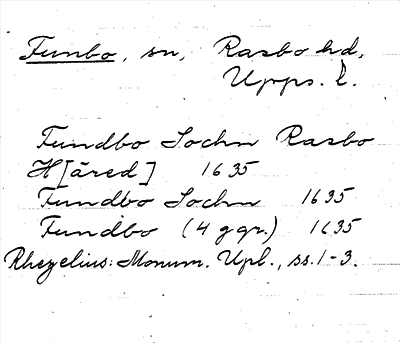 Funbo, sn, Rasbo hd,
Upps. l.
Fundbo Sochn Rasbo
H[äred] 1635
Fundbo Sochn 1635
Fundbo (4 ggr.) 1635
Rhezelius: Monum. Upl., ss. 1-3.